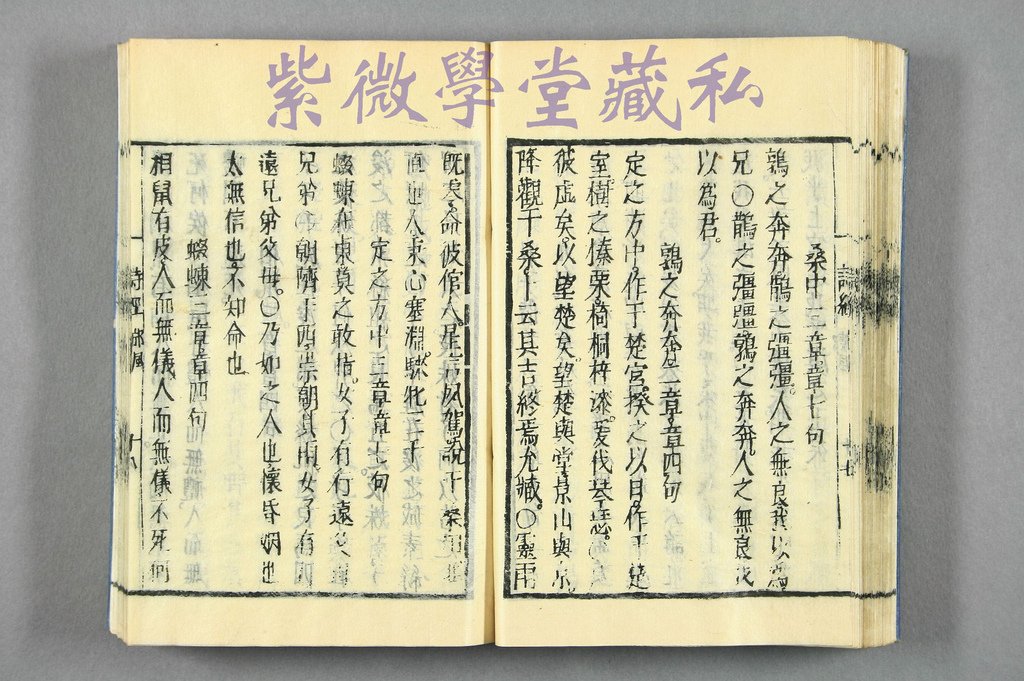 紫微學堂藏私
詩經
十七
桑中三章章七句
鶉之奔奔鵲之彊彊。人之無良我以為
兄〇鵲之彊彊鶉之奔奔。人之無良我
以為君。
鶉之奔奔二章章四句
定之方中。作于楚宮。揆之以日。作于楚
室。樹之榛栗。椅桐梓漆。爰伐琴瑟。
彼虛矣。以望楚矣。望楚與堂景山與京。
降觀于桑卜云其吉終焉允臧。〇靈雨
既零命彼倌人。星言夙駕說于桑田匪
直也人秉心塞淵。騋牝三千
定之方中三章章七句
蝃蝀在東莫之敢指。女子有行遠父母
兄弟〇朝隮于西崇朝其雨女子有行
遠兄弟父母。〇乃如之人也懷昏姻也
太無信也。不知命也
蝃蝀三章章四句
相鼠有皮人而無儀人而無儀不死何
詩經 鄘風
十八